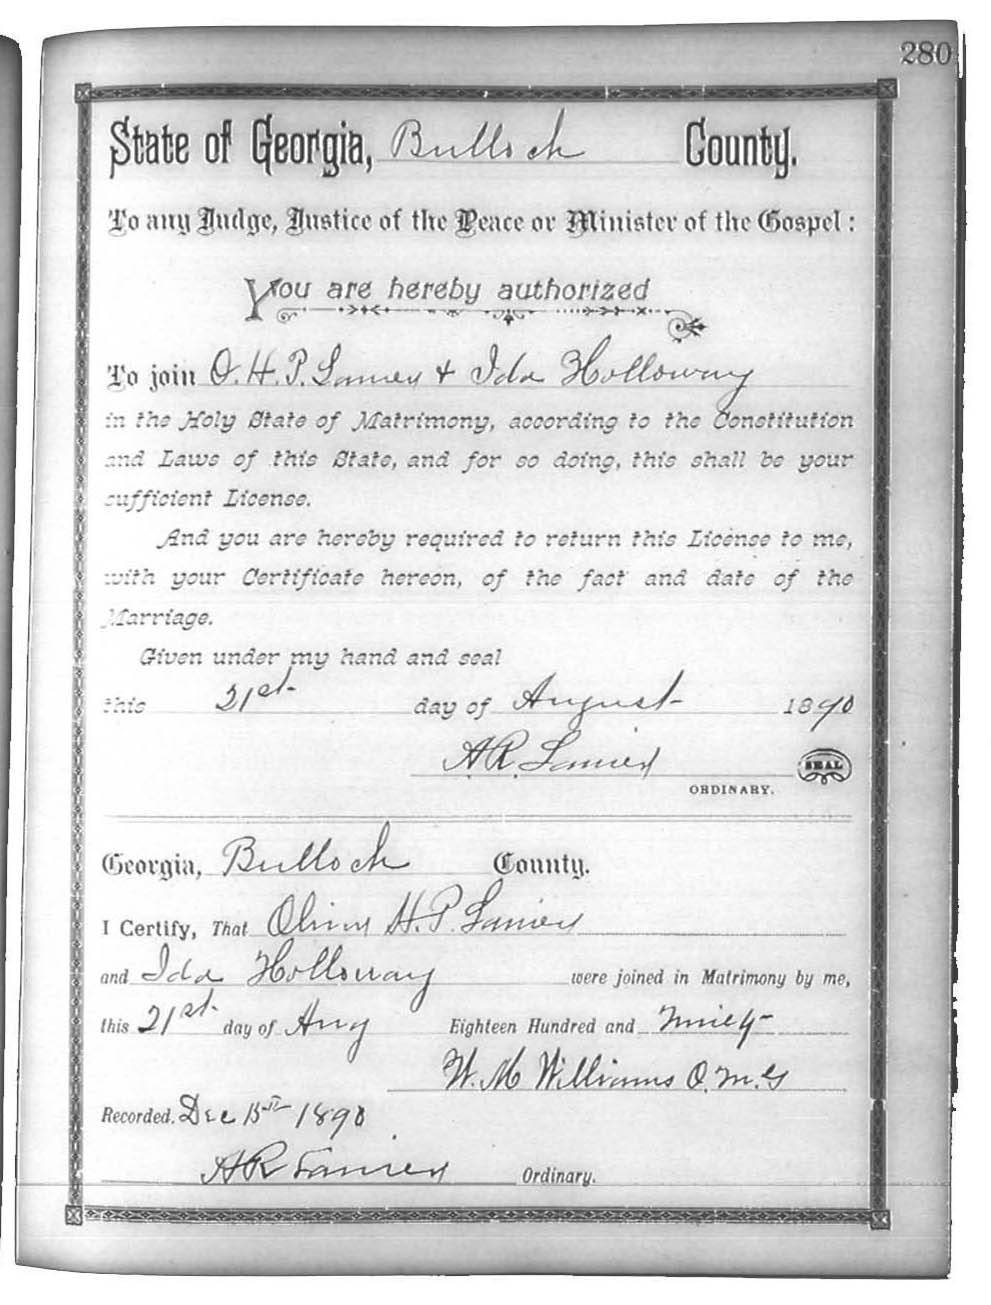 280
State of Georgia, Bulloch County.
To any Judge, Justice of the Peace or Minister of the Gospel:
You are hereby authorized
To join O. H. P. Lanier + Ida Holloway
in the Holy State of Matrimony, according to the Constitution
and Laws of this State, and for so doing, this shall be your
sufficient License.
And you are hereby required to return this License to me,
with your Certificate hereon, of the fact and date of the
Marriage.
Given under my hand and seal
this 21st day of August 1890
A.R. Lanier SEAL
ORDINARY.
Georgia, Bulloch County.
I Certify, That Oliver H. P. Lanier
and Ida Holloway were joined in Matrimony by me,
this 21st day of Aug Eighteen Hundred and Ninety
W. M Williams O.M.G
Recorded. Dec 15th 1890
A R Lanier Ordinary.